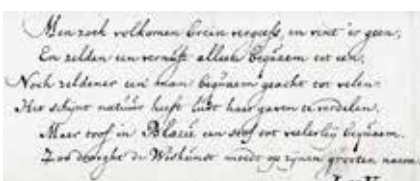 Men zoek volkomen brein vergeefs, en vint 'er geen;
En zelden een vernuft alleen bequaem tot een,
Noch zeldener een man bequaem geacht tot velen
Het schijnt natuur heeft lust haer gaven te verdelen,
Maer roof in Blacie een stof tot velerley bequaem.
Zoo draeght de Wiskunst moedt op zynen grooten naem.